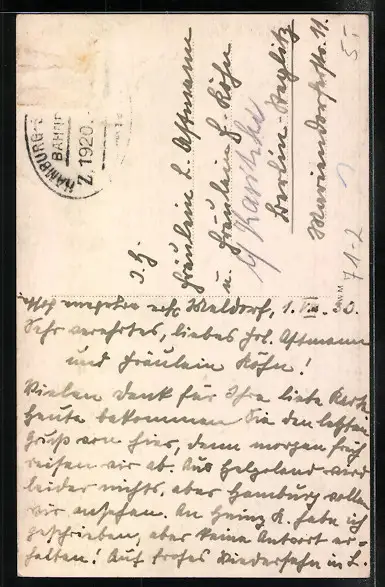 HAMBURG-
BAHNP
Z. 1920
I. H.
Fräulein L. Astmann
u. Fräulein H. Köhn
Berlin-Steglitz
Mariendorferstr. 11.
5.-
71-2
Meldorf, 1. VII. 30.
Sehr verehrtes, liebes Frl. Astmann
und Fräulein Köhn!
Vielen Dank für Ihre liebe Karte
heute bekommen Sie den letzten
Gruß von hier, denn morgen früh
reisen wir ab. Aus Helgoland wird
leider nichts, aber Hamburg wollen
wir ansehen. An Heinz K. habe ich
geschrieben, aber keine Antwort er-
halten! Auf frohes Wiedersehn in L.